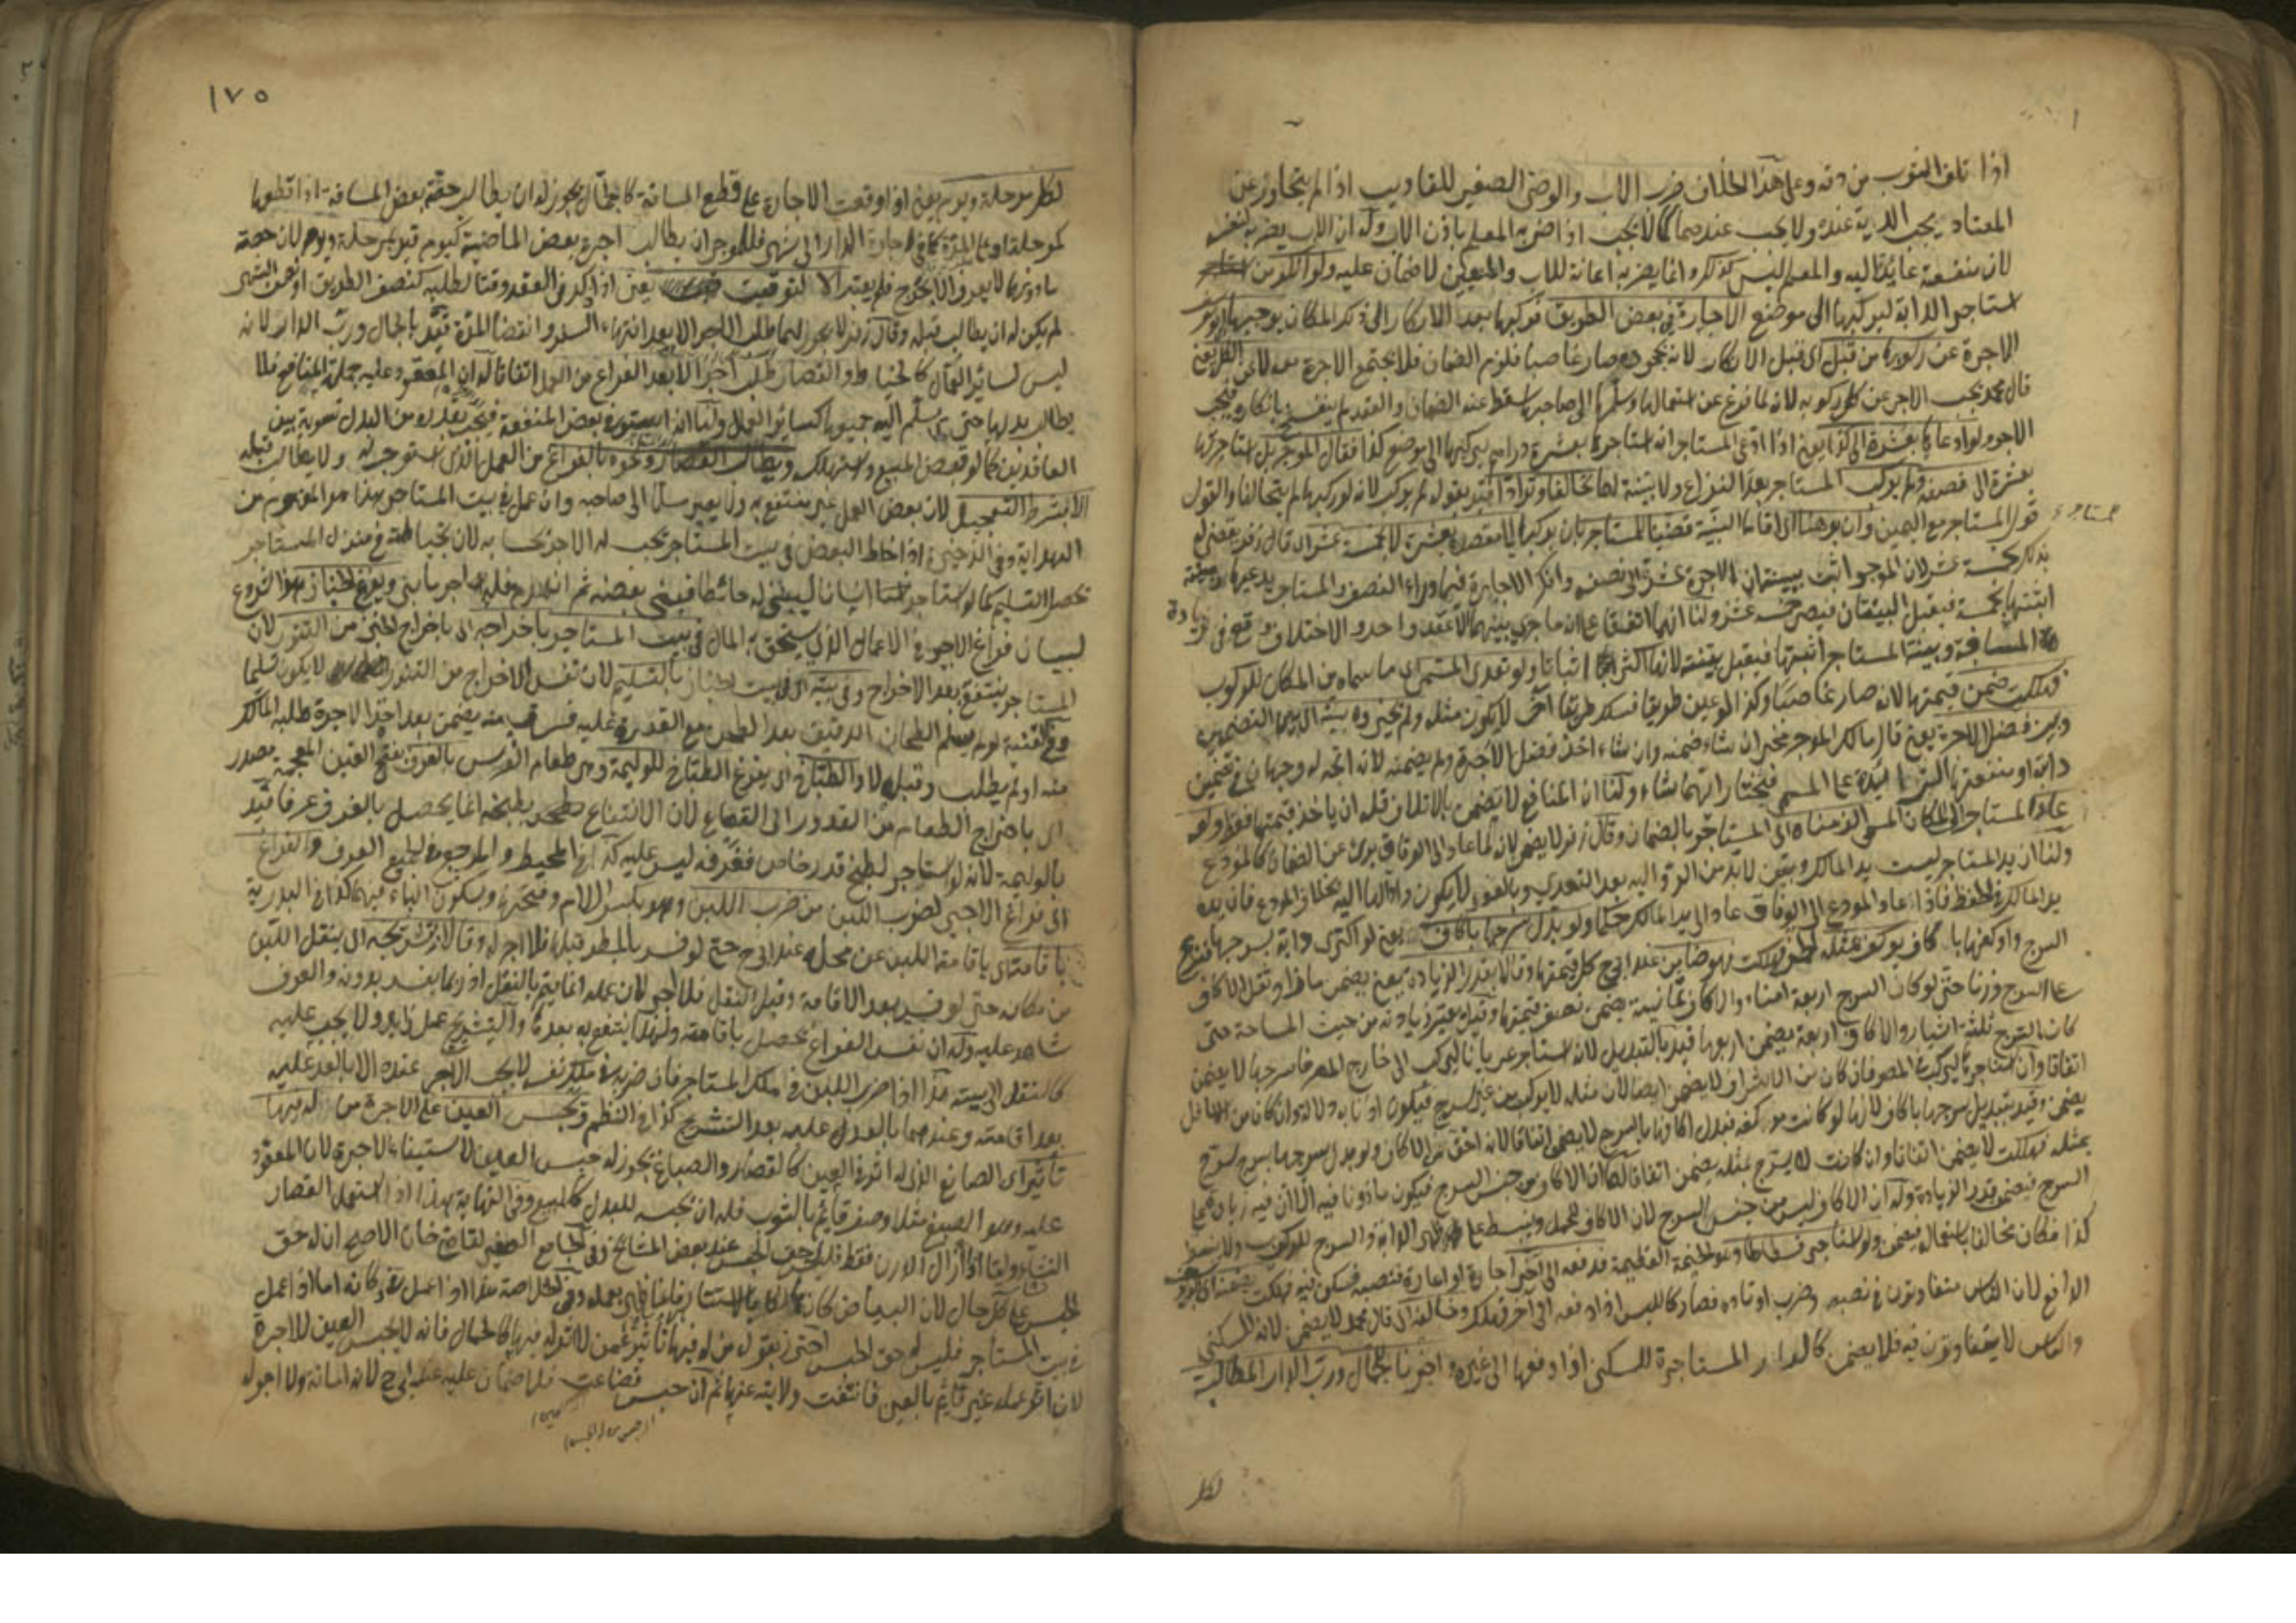 اذا تلف الثوب من دقه وعلى هذا الخلاف ضرب الاب والوصى الصغير للتاديب اذا لم يتجاوز عن
المعتاد يجب الدية عنده ولا يجب عندهما كما لا يجب اذا ضربه المعلم باذن الاب وله ان الاب يضربه لنفسه
لان منفعته عايدة اليه والمعلم ليس كذلك وانما يضربه اعانة للاب والمعين لا ضمان عليه ولو انكر من
استاجر الدابة ليركبها الى موضع الاجارة فى بعض الطريق فركبها بعد الانكار الى ذلك المكان يوجبها ابو يوسف
الاجرة عن ركوبها من قبل اى قبل الانكار لانه بجحوده صار غاصبا فلزم الضمان فلا يجتمع الاجرة معه لا عن الكل يعنى
قال محمد يجب الاجر عن كل ركوبه لانه لما فرغ عن استعمالها وسلمها الى صاحبها سقط عنه الضمان والعقد لم ينفسخ بانكاره فيجب
الاجر ولو ادعاها بعشرة الى كذا يعنى اذا ادعى المستاجر انه استاجرها بعشرة دراهم ليركبها الى موضع كذا فقال الموجر بل استاجرتها
بعشرة الى نصفه ولم يركب المستاجر بعد النزاع ولا بينة لهما تحالفا وترادا قيد بقوله لم يركب لانه لو ركبها لم يتحالفا والقول
قول المستاجر مع اليمين وان برهنا اى اقاما البينة قضينا للمستاجر بان يركبها الى مقصده بعشرة لا بخمسة عشر اى قال زفر يقضى له
بذلك بخمسة عشر لان الموجر اثبت ببينته ان الاجرة عشرة الى نصفه وانكر الاجارة فيما وراء النصف والمستاجر يدعيها وبينته
اثبتتها بخمسة فيقبل البينتان فيصير خمسة عشر ولنا انهما اتفقا على ان ما جرى بينهما الا عقد واحد والاختلاف وقع فى زيادة
المسافة وبينة المستاجر اثبتتها فيقبل بينته لانها اكثر اثباتا ولو تعدى المسمى اى ما سماه من المكان للركوب
فهلكت ضمن قيمتها لانه صار غاصبا وكذا لو عين طريقا فسلك طريقا آخر لا يكون مثله ولم نخيره بينه اى بين التضمين
وبين فضل الاجرة يعنى قال مالك الموجر مخير ان شاء ضمنه وان شاء اخذ فضل الاجرة ولم يضمنه لانه اتجه له وجهان فى تضمين
دابته او منفعتها الزائدة على المسمى فيختار ايهما شاء ولنا ان المنافع لا يضمن بالاتلاف فله ان ياخذ قيمتها فقط ولو
عاد المستاجر الى المكان المسمى الزمناه اى المستاجر بالضمان وقال زفر لا يضمن لانه لما عاد الى الوفاق برئ عن الضمان كالمودع
ولنا ان يد المستاجر ليست يد المالك وبقين لا بد من الرد اليه بعد التعدى وبالعود لا يكون رادا لها اليه بخلاف المودع فان يده
يد المالك فى الحفظ فاذا عاد المودع الى الوفاق عاد الى يد المالك حكما ولو بدل سرجها باكاف يعنى لو اكترى دابة بسرجها فنزع
السرج واوكفها باكاف يوكف بمثله فهلكت فهو ضامن عند ابى ح كل قيمتها وقالا بقدر الزيادة يعنى يضمن ما زاد ثقل الاكاف
على السرج وزنا حتى لو كان السرج اربعة امناء والاكاف ثمانية يضمن نصف قيمتها وقيل يعتبر زيادته من حيث المساحة حتى
كان السرج ثلثة اشبار والاكاف اربعة يضمن اربعها قيد بالتبديل لانه استاجر عريانا ليركب الى خارج المصر فاسرجها لا يضمن
اتفاقا وان استاجرها ليركب فى المصر فان كان من الاشراف لا يضمن ايضا لان مثله لا يركب من غير سرج فيكون اذنا به دلالة وان كان من الاسافل
يضمن وقيد بتبديل سرجها باكاف لانها لو كانت موكفة فبدل اكافها بالسرج لا يضمن اتفاقا لانه اخف من الاكاف ولو بدل سرجها بسرج يسرج
بمثله فهلكت لا يضمن اتفاقا وان كانت لا يسرج بمثله يضمن اتفاقا لهما ان الاكاف من جنس السرج فيكون ماذونا فيه الا ان فيه زيادة على
السرج فيضمن قدر الزيادة وله ان الاكاف ليس من جنس السرج لان الاكاف للحمل وينبسط على ظهر الدابة والسرج للركوب ولا ينبسط
كذا فكان مخالفا باستعماله فيضمن ولو استاجر فسطاطا وهو الخيمة العظيمة فدفعه الى آخر اجارة او اعارة فنصبه فسكن فيه فهلكت يضمنه ابو يوسف
الدافع لان الناس متفاوتون فى نصبه وضرب اوتاده فصار كاللبس اذا دفعه الى آخر فهلك وخالفه اى قال محمد لا يضمن لانه للسكنى
والناس لا يتفاوتون فيه فلا يضمن كالدار المستاجرة للسكنى اذا دفعها الى غيره واجزنا للجمال ورب الدار المطالبة
لكل
١٧٥
لكل مرحلة ويوم يعنى اذا وقعت الاجارة على قطع المسافة كالجمال يجوز له ان يطالب حصة بعض المسافة اذا قطعها
كمرحلة او على المدة كما فى اجارة الدار الى شهر فللموجر ان يطالب اجرة بعض الماضية كيوم قيد بمرحلة ويوم لان حصة
ما دونها لا يعرف الا بحرج فلم يعتبر الا لتوقيت يعنى اذا ذكر فى العقد وقتا لطلبه كنصف الطريق او نصف الشهر
لم يكن له ان يطالب قبله وقال زفر لا يجوز لهما طلب الاجر الا بعد انتهاء السفر وانقضا المدة قيد بالجمال ورب الدار لانه
ليس لسائر العمال كالخياط والقصار طلب الاجر الا بعد الفراغ من العمل اتفاقا له ان المعقود عليه جملة المنافع فلا
يطالب بدلها حتى يسلم اليه جميعها كسائر العمال ولنا انه استوفى بعض المنفعة فيجب بقدره من البدل تسوية بين
العاقدين كما لو قبض المبيع واستهلك ويطالب القصار ونحوه بالفراغ من العمل الذى استوجر له ولا يطالب قبله
الا بشرط التعجيل لان بعض العمل غير منتفع به ولا يصير مسلما الى صاحبه وان عمل فى بيت المستاجر هذا هو المفهوم من
الهداية وفى الذخيرة اذا خاط البعض فى بيت المستاجر يجب له الاجر بحسابه لان بخياطته فى منزل المستاجر
تحصل التسليم كما لو استاجر انسانا ليبنى له حائطا فبنى بعضه ثم انهدم فله اجر ما بنى ويفرغ الخباز هذا شروع
لبيان فراغ الاجير فى الاعمال الذى يستحق به المال فى بيت المستاجر باخراجه اى باخراج الخبز من التنور لان
المستاجر ينتفع بعد الاخراج وفى بيته اى فى بيت الخباز بالتسليم لان نفس الاخراج من التنور لا يكون تسليما
وفى القنية لو لم يسلم الطحان الدقيق بعد الطحن مع القدرة عليه فسرق منه يضمن بعد اخذ الاجرة طلبه المالك
منه او لم يطلب وقبله لا والطباخ اى يفرغ الطباخ للوليمة وهى طعام العرس بالغرف بفتح الغين المعجمة مصدر
اى باخراج الطعام من القدور الى القصاع لان الانتفاع بطبخه انما يحصل بالغرف عرفا قيد
بالوليمة لانه لو استاجر لطبخ قدر خاص فغرفه ليس عليه كذا فى المحيط والمرجع فى الجميع العرف والفراغ
اى فراغ الاجير لضرب اللبن من ضرب اللبن وهو بكسر اللام وفتحها وسكون الباء فيهما كذا فى البدرية
باقامته اى باقامة اللبن عن محله عند ابى ح حتى لو فسد بالمطر قبلها فلا اجر له وقالا بتشريجه اى بنقل اللبن
من مكانه حتى لو فسد بعد الاقامة وقبل النقل فلا اجر لان عمله انما يتم بالنقل اذ ربما يفسد بدونه والعرف
شاهد عليه وله ان نفس الفراغ يحصل باقامته ولهذا ينتفع به بعدها والتشريج عمل زايد ولا يجب عليه
كالنقل الى بيته هذا اذا ضرب اللبن فى ملك المستاجر فان ضربه فى ملك نفسه لا يجب الاجر عنده الا بالعد عليه
بعد اقامته وعندهما بالعد عليه بعد التشريج كذا فى النظم ويحبس العين على الاجرة من له فيها
تاثير اى الصانع الذى له اثر فى العين كالقصار والصباغ يجوز له حبس العين لاستيفاء الاجرة لان المعقود
عليه وهو الصبغ مثلا وصف قايم بالثوب فله ان يحبسه للبدل كالمبيع وفى النهاية هذا اذا استعمل القصار
النشاء واما اذا ازال الدرن فقط فليس له حق الحبس عند بعض المشائخ وفى الجامع الصغير لقاضى خان الاصح ان له حق
الحبس على كل حال لان البياض كان هالكا بالاستتار فاعاده بعمله وفى الخلاصة هذا اذا عمل فى دكانه اما اذا عمل
فى بيت المستاجر فليس له حق الحبس احترز بقوله من له فيها تاثير عمن لا اثر له فيها كالحمال فانه لا يحبس العين للاجرة
لان اثر عمله غير قايم بالعين فانتفت ولايته عنها ثم ان حبس فضاعت فلا ضمان عليه عند ابى ح لانه امانة ولا اجر له